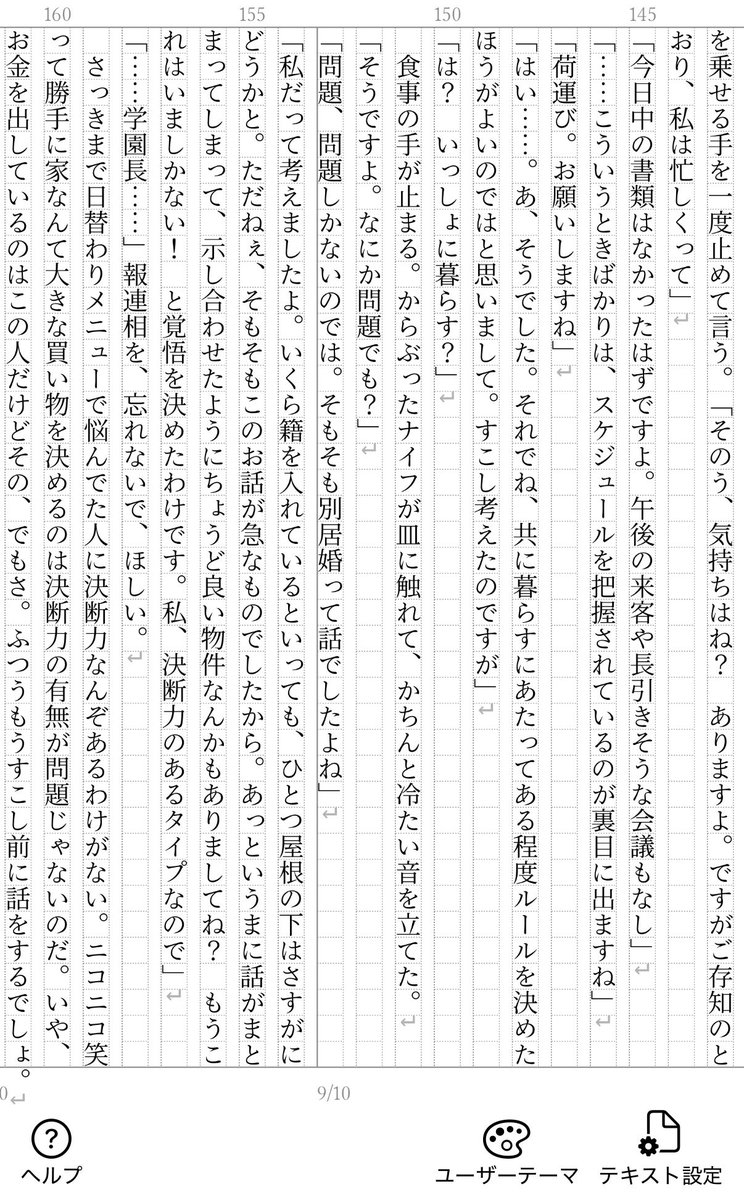 160
155
150
145
を乗せる手を一度止めて言う。「そのう、気持ちはね？　ありますよ。ですがご存知のと
おり、私は忙しくって」↵
「今日中の書類はなかったはずですよ。午後の来客や長引きそうな会議もなし」↵
「……こういうときばかりは、スケジュールを把握されているのが裏目に出ますね」↵
「荷運び。お願いしますね」↵
「はい……。あ、そうでした。それでね、共に暮らすにあたってある程度ルールを決めた
ほうがよいのではと思いまして。すこし考えたのですが」↵
「は？　いっしょに暮らす？」↵
　食事の手が止まる。からぶったナイフが皿に触れて、かちんと冷たい音を立てた。↵
「そうですよ。なにか問題でも？」↵
「問題、問題しかないのでは。そもそも別居婚って話でしたよね」↵
「私だって考えましたよ。いくら籍を入れているといっても、ひとつ屋根の下はさすがに
どうかと。ただねぇ、そもそもこのお話が急なものでしたから。あっというまに話がまと
まってしまって、示し合わせたようにちょうど良い物件なんかもありましてね？　もうこ
れはいましかない！　と覚悟を決めたわけです。私、決断力のあるタイプなので」↵
「……学園長……」報連相を、忘れないで、ほしい。↵
　さっきまで日替わりメニューで悩んでた人に決断力なんぞあるわけがない。ニコニコ笑
って勝手に家なんて大きな買い物を決めるのは決断力の有無が問題じゃないのだ。いや、
お金を出しているのはこの人だけどその、でもさ。ふつうもうすこし前に話をするでしょ。↵
0
9/10
ヘルプ
ユーザーテーマ
テキスト設定